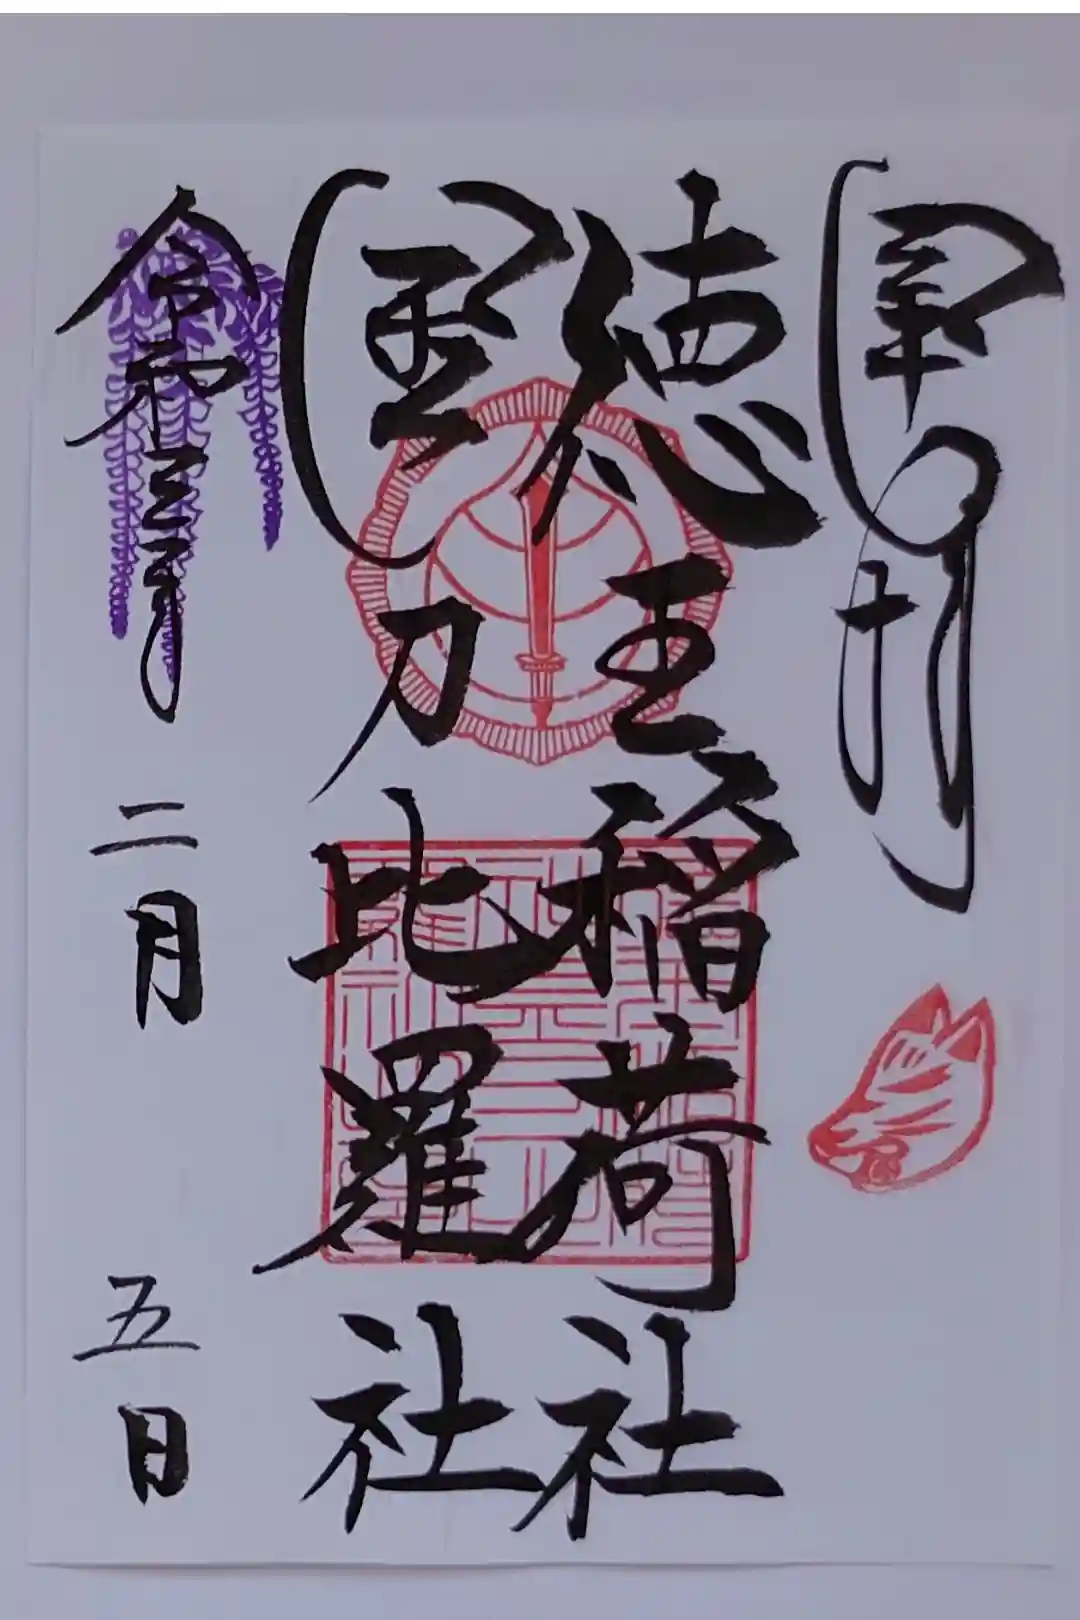 奉拝
徳王稲荷社
金刀比羅社
令和三年 二月 五日